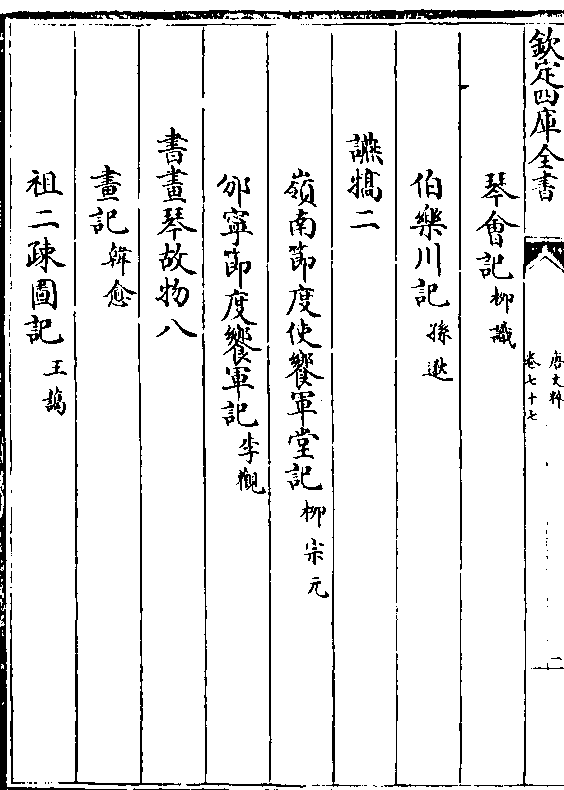 欽定四庫全書
唐文粹
卷七十七
二
琴會記 柳識
伯樂川記 孫逖
讌犒二
嶺南節度使饗軍堂記 柳宗元
邠寧節度饗軍記 李觀
書畫琴故物八
畫記 韓愈
祖二疎圖記 王藹